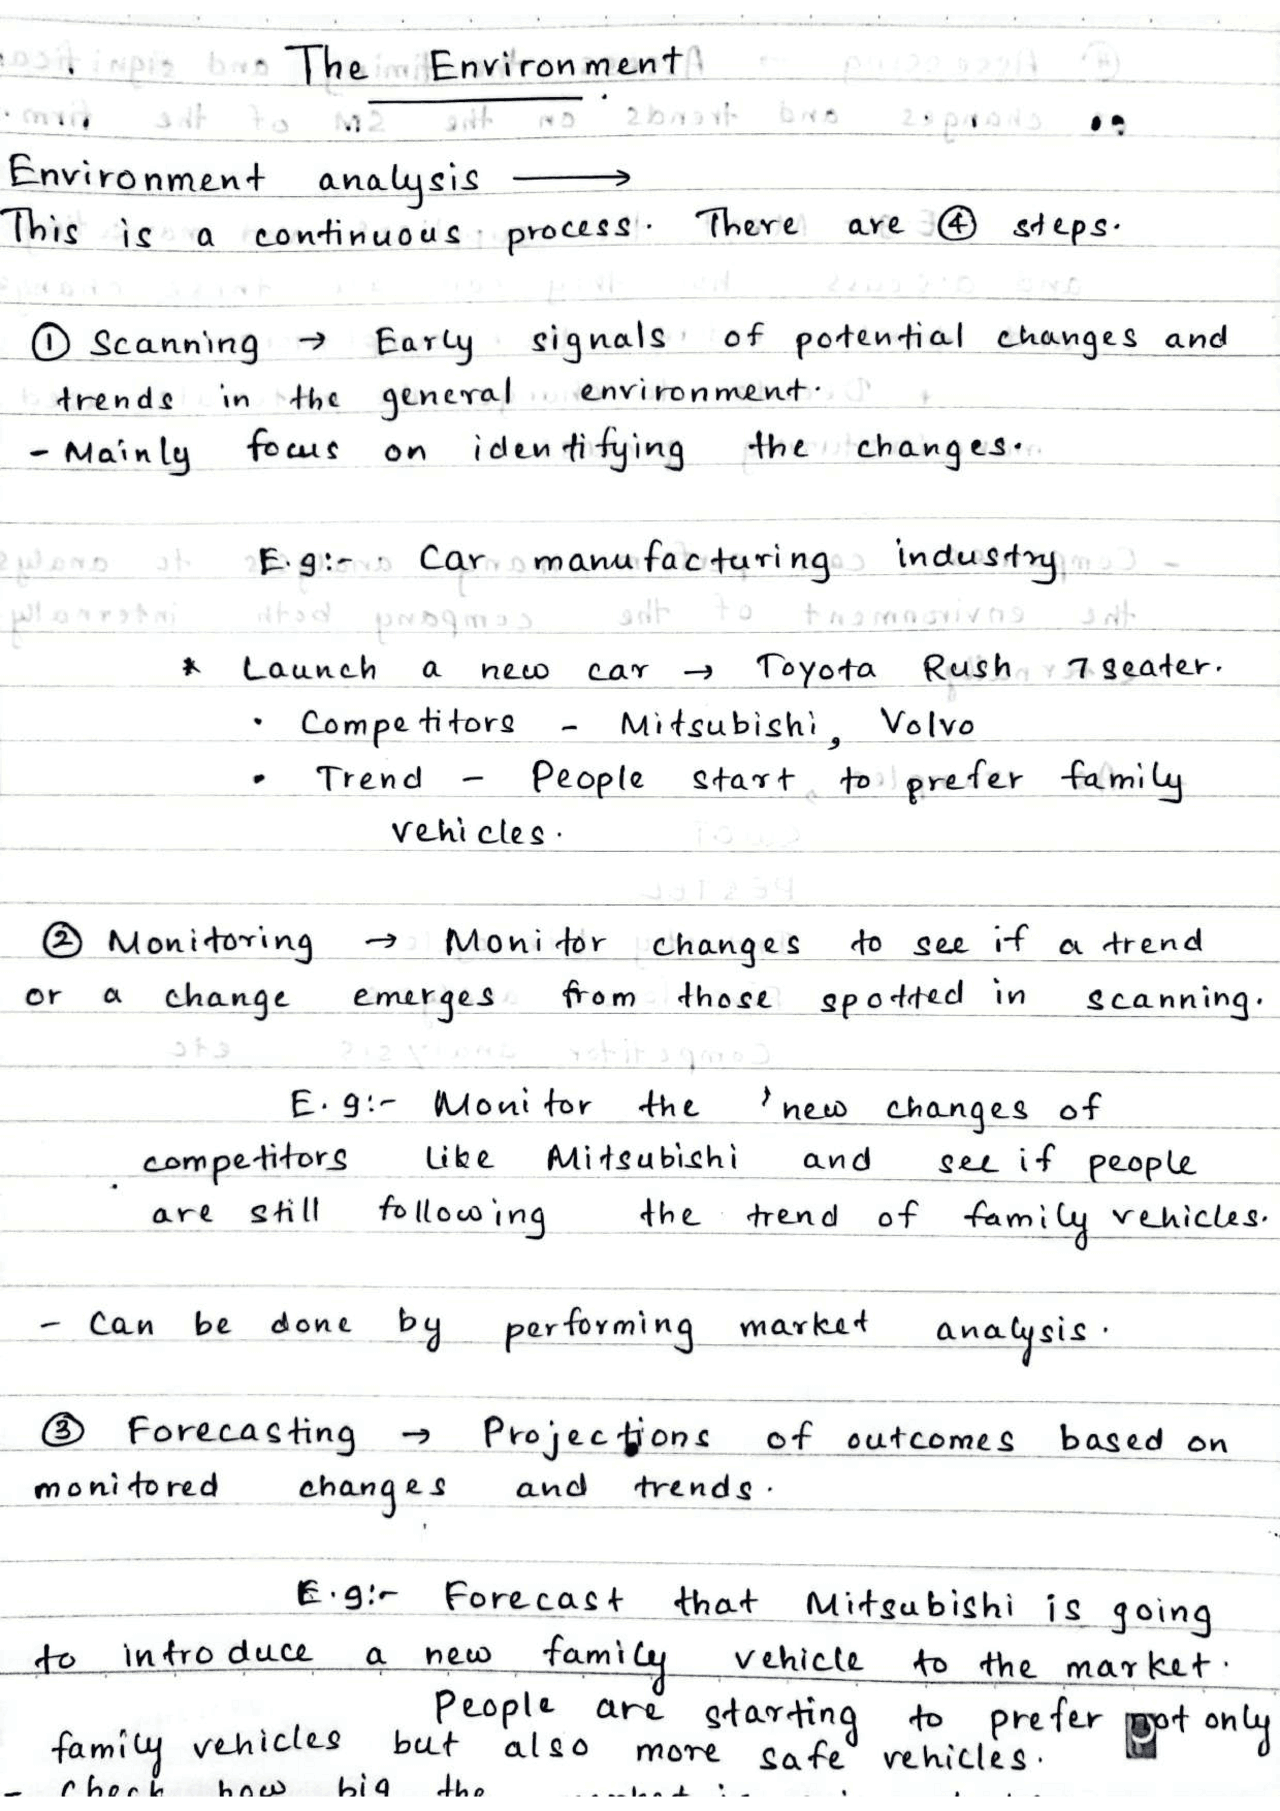 The Environment
Environment analysis ⟶
This is a continuous process. There are ④ steps.
① Scanning → Early signals of potential changes and
trends in the general environment.
- Mainly focus on identifying the changes.
E.g:- Car manufacturing industry
* Launch a new car → Toyota Rush 7 seater.
• Competitors - Mitsubishi, Volvo
• Trend - People start to prefer family
vehicles.
② Monitoring → Monitor changes to see if a trend
or a change emerges from those spotted in scanning.
E.g:- Monitor the new changes of
competitors like Mitsubishi and see if people
are still following the trend of family vehicles.
- Can be done by performing market analysis.
③ Forecasting → Projections of outcomes based on
monitored changes and trends.
E.g:- Forecast that Mitsubishi is going
to introduce a new family vehicle to the market.
People are starting to prefer not only
family vehicles but also more safe vehicles.
- Check how big the